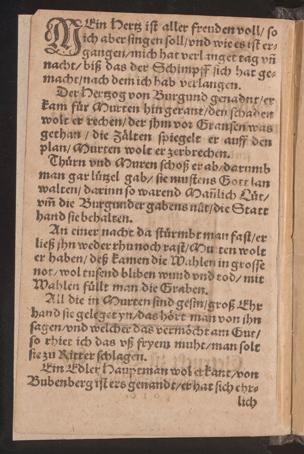 MEin Hertz ist aller freuden voll/ so
ich aber singen soll/vnd wie es ist er-
gangen/mich hat verlanget tag vñ
nacht/biß das der Schimpff sich hat ge-
macht/nach dem ich hab verlangen.
Der Hertzog von Burgund genandt/er
kam für Murten hin gerant/den schaden
wolt er rechen/der jhm vor Gransen was
gethan/die Zälten spiegelt er auff den
plan/Murten wolt er zerbrechen.
Thürn vnd Muren schoß er ab/darumb
man gar lützel gab/sie mustens Gott lan
walten/darinn so warend Mañlich Lüt/
vñ die Burgunder gabens nüt/die Statt
hand sie behalten.
An einer nacht da stürmbt man fast/er
ließ jhn weder rhu noch rast/Murten wolt
er haben/deß kamen die Wahlen in grosse
not/wol tusend bliben wund vnd tod/mit
Wahlen füllt man die Graben.
All die in Murten sind gesin/groß Ehr
hand sie geleget yn/das hört man von jhn
sagen/vnd welcher das vermöcht am Gut/
so rhiet ich das vß fryem muht/man solt
sie zu Ritter schlagen.
Ein Edler Hauptman wol erkant/von
Bubenberg ist ers genandt/er hat sich ehr-
lich